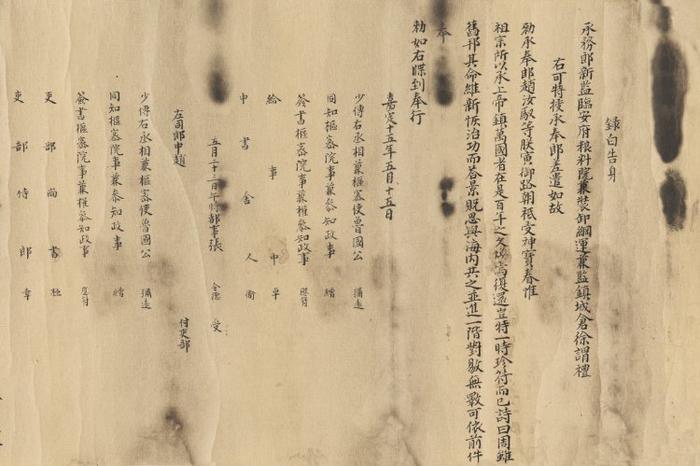 錄白告身
承務郎新監臨安府粮料院兼裝卸綱運兼監鎮城倉徐謂禮
右可特授承奉郎差遣如故
勑承奉郎趙汝馭等朕寅御路朝祗受神寶眷惟
祖宗所以承上帝鎮萬國者在是百年之久而復還豈特一時珍符而已詩曰周雖
舊邦其命維新恢治功而眷景貺思與海内共之並進一階對敭無斁可依前件
奉
勑如右牒到奉行
嘉定十五年五月十五日
少傅右丞相兼樞密使魯國公 彌遠
同知樞密院事兼參知政事 繒
簽書樞密院事兼權參知政事 應符
給事中 卓
中書舍人 衞
五月二十二日午時都事張 令德 受
左司郎中趙 付吏部
少傅右丞相兼樞密使魯國公 彌遠
同知樞密院事兼參知政事 繒
簽書樞密院事兼權參知政事 應符
吏部尚書
吏部侍郎 韋